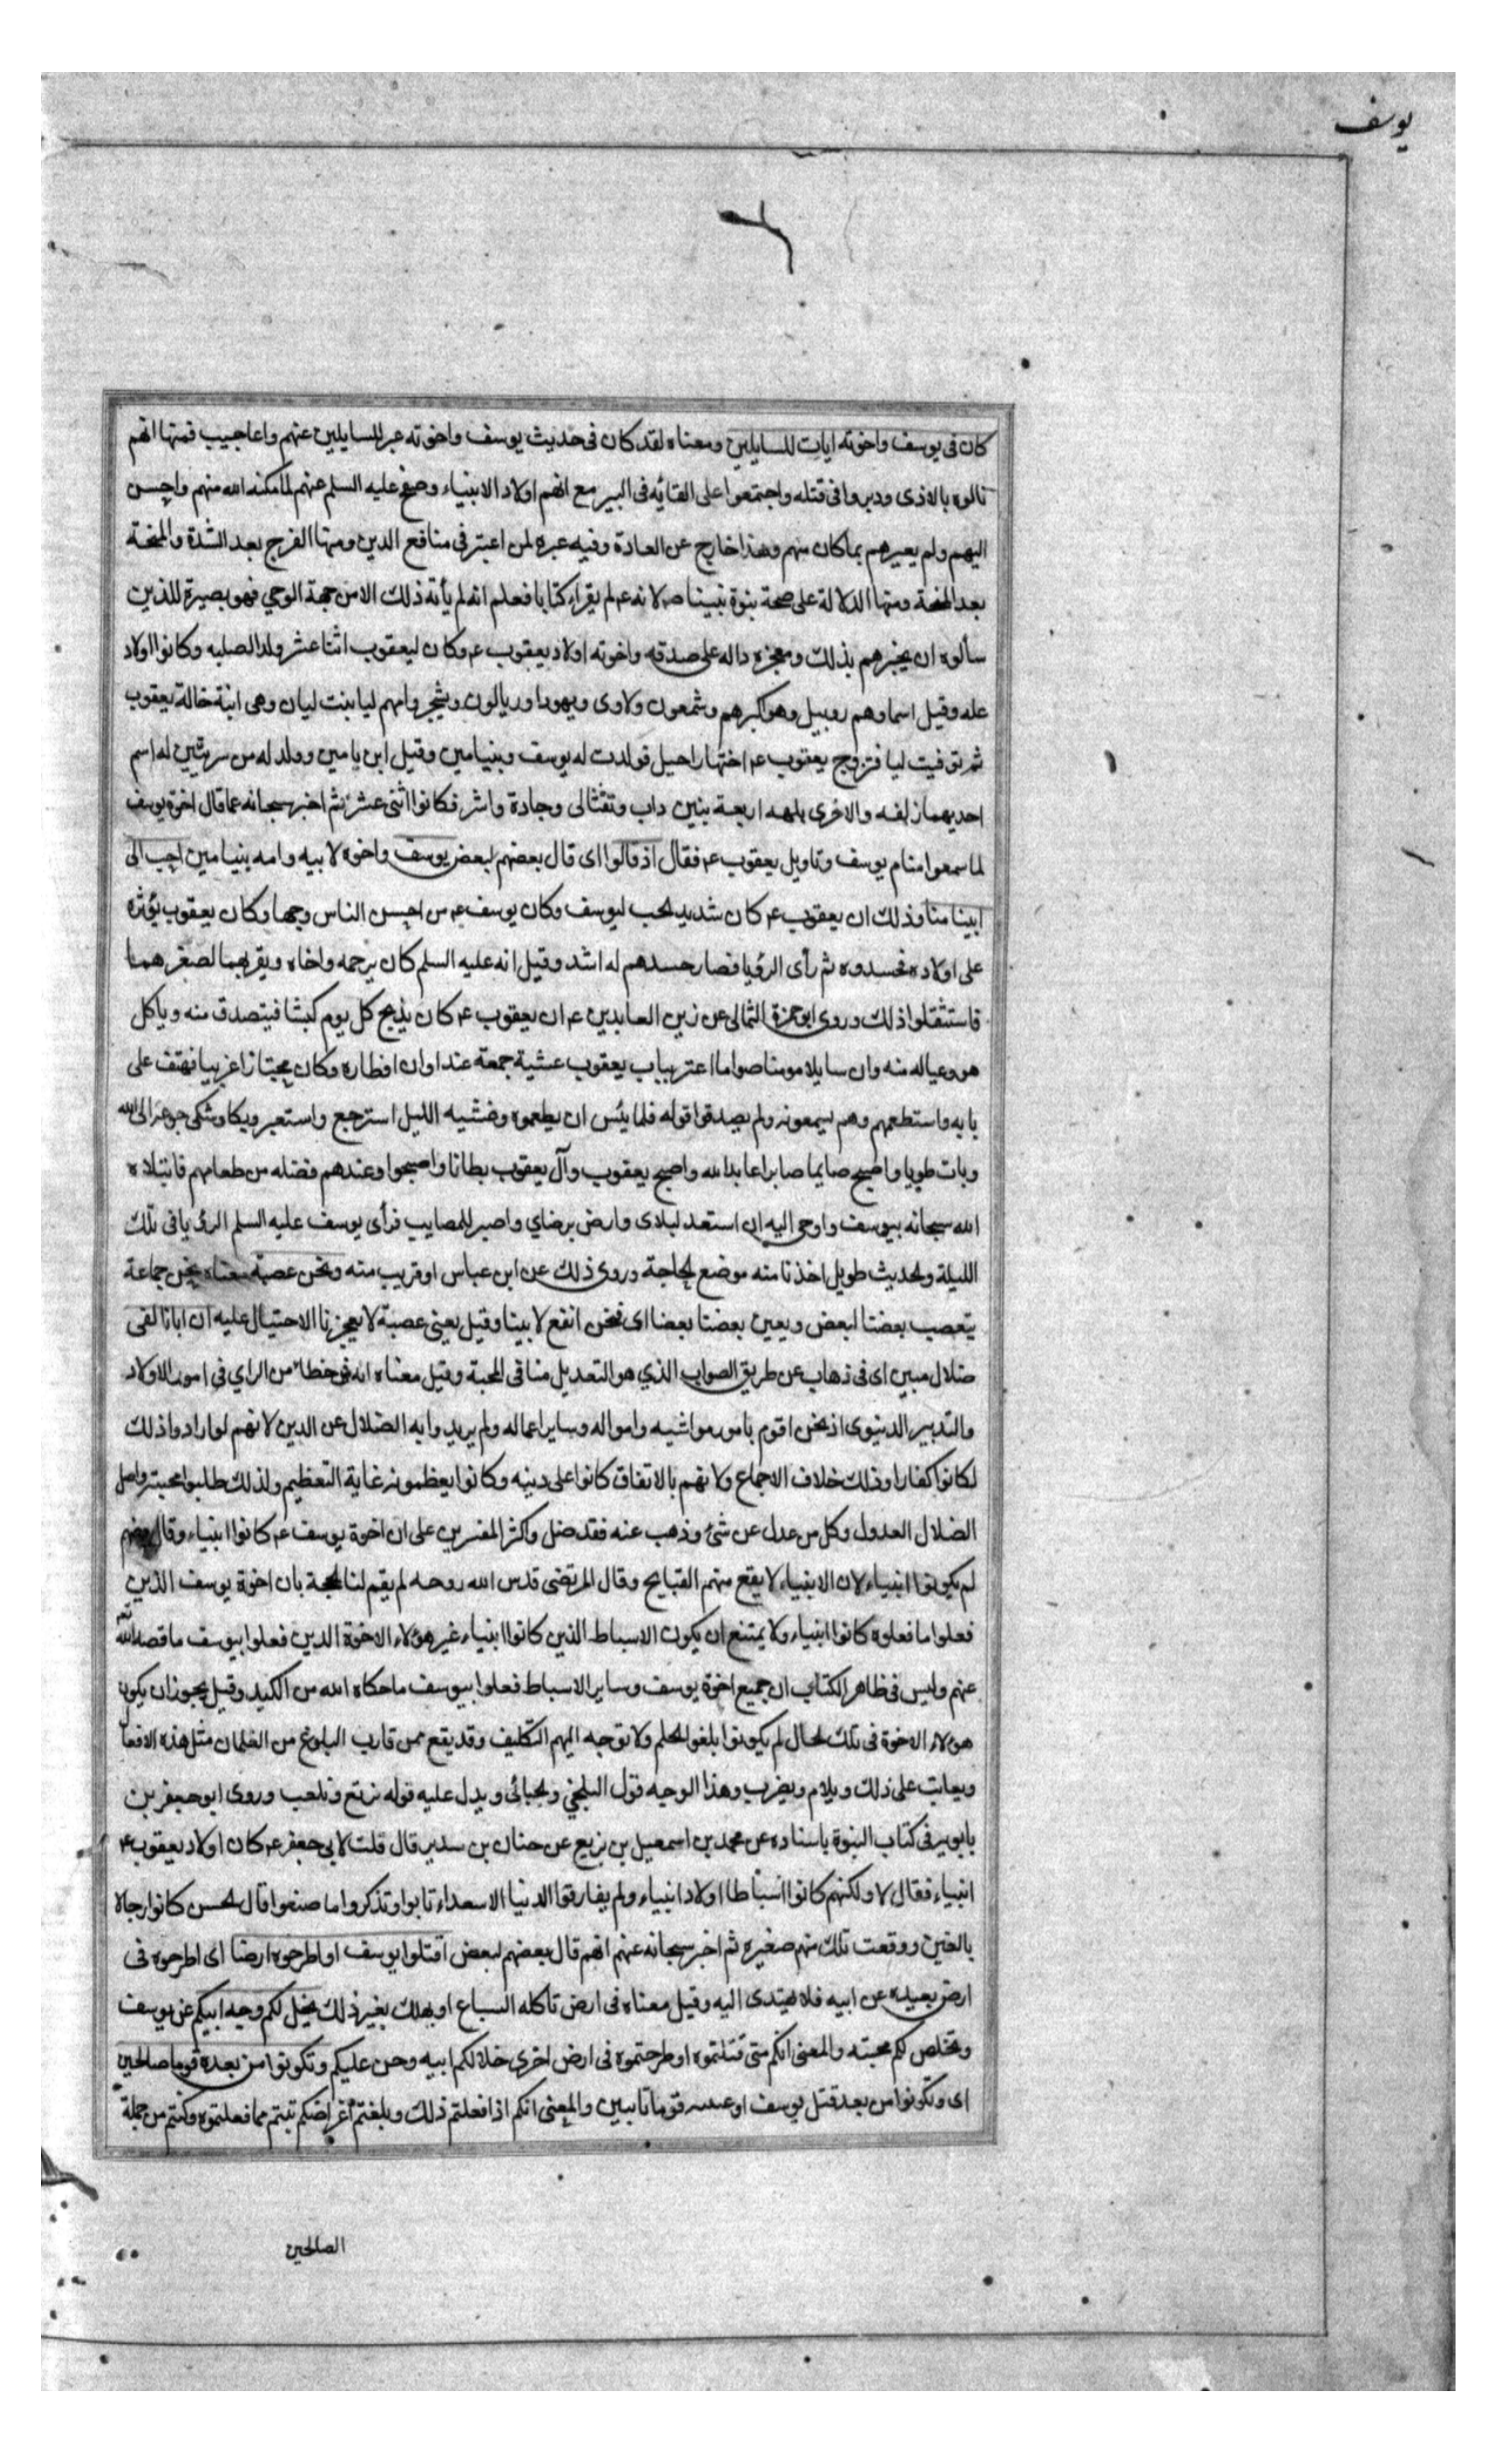 يوسف
كان فى يوسف واخوته ايات للسايلين ومعناه لقد كان فى حديث يوسف واخوته عبر للسايلين عنهم واعاجيب فمنها انهم
نالوه بالاذى ودبروا فى قتله واجتمعوا على القائه فى البير مع انهم اولاد الانبياء وصفح عليه السلم عنهم لما مكنه الله منهم واحسن
اليهم ولم يعيرهم بما كان منهم وهذا خارج عن العادة وفيه عبره لمن اعتبر فى منافع الدين ومنها الفرج بعد الشدة والمنحة
بعد المحنة ومنها الدلالة على صحة نبوة نبينا ص لانه ع لم يقراء كتابا فعلم انه لم يأته ذلك الا من جهة الوحي فهو بصيرة للذين
سألوه ان يخبرهم بذلك ومعجزه داله على صدقه واخوته اولاد يعقوب ع وكان ليعقوب اثنا عشر ولدا لصلبه وكانوا اولاد
عله وقيل اسماوهم روبيل وهو اكبرهم وشمعون ولاوى ويهودا وريالون ويشجر وامهم ليا بنت ليان وهى ابنة خالة يعقوب
ثم توفيت ليا فتزوج يعقوب ع اختها راحيل فولدت له يوسف وبنيامين وقيل ابن يامين وولد له من سريتين له اسم
احديهما زلفه والاخرى بلهه اربعة بنين داب ونفتالى وجادة واشر فكانوا اثنى عشر ثم اخبر سبحانه عما قال اخوة يوسف
لما سمعوا منام يوسف وتاويل يعقوب ع فقال اذ قالوا اى قال بعضهم لبعض يوسف واخوه لابيه وامه بنيامين احب الى
ابينا منا وذلك ان يعقوب ع كان شديد الحب ليوسف وكان يوسف ع من احسن الناس وجها وكان يعقوب يؤثره
على اولاده فحسدوه ثم رأى الرؤيا فصار حسدهم له اشد وقيل انه عليه السلم كان يرحمه واخاه ويقربهما لصغرهما
فاستثقلوا ذلك وروى ابو حمزة الثمالى عن زين العابدين ع ان يعقوب ع كان يذبح كل يوم كبشا فيتصدق منه وياكل
هو وعياله منه وان سايلا مومنا صواما اعتر بباب يعقوب عشية جمعة عند اوان افطاره وكان مجتازا غريبا فهتف على
بابه واستطعمهم وهم يسمعونه ولم يصدقوا قوله فلما يئس ان يطعموه وغشيه الليل استرجع واستعبر وبكا وشكى جوعه الى الله
وبات طويا واصبح صايما صابرا عابدا لله واصبح يعقوب وآل يعقوب بطانا واصبحوا وعندهم فضله من طعامهم فابتلاه
الله سبحانه بيوسف واوحى اليه ان استعد لبلاى وارض برضاي واصبر للمصايب فرأى يوسف عليه السلم الرؤيا فى تلك
الليلة والحديث طويل اخذنا منه موضع الحاجة وروى ذلك عن ابن عباس او قريب منه ونحن عصبة معناه نحن جماعة
يتعصب بعضنا لبعض ويعين بعضنا بعضا اى فنحن انفع لابينا وقيل يعنى عصبة لا يعجزنا الاحتيال عليه ان ابانا لفى
ضلال مبين اى فى ذهاب عن طريق الصواب الذي هو التعديل منا فى المحبة وقيل معناه انه فى خطاء من الراي فى امور الاولاد
والتدبير الدنيوى اذ نحن اقوم بامور مواشيه وامواله وساير اعماله ولم يريدوا به الضلال عن الدين لانهم لو ارادوا ذلك
لكانوا كفارا وذلك خلاف الاجماع ولانهم بالاتفاق كانوا على دينه وكانوا يعظمونه غاية التعظيم ولذلك طلبوا محبته واصل
الضلال العدول وكل من عدل عن شئ وذهب عنه فقد ضل واكثر المفسرين على ان اخوة يوسف ع كانوا انبياء وقال بعضهم
لم يكونوا انبياء لان الانبياء لا يقع منهم القبايح وقال المرتضى قدس الله روحه لم يقم لنا الحجة بان اخوة يوسف الذين
فعلوا ما فعلوه كانوا انبياء ولا يمتنع ان يكون الاسباط الذين كانوا انبياء غير هؤلاء الاخوة الذين فعلوا بيوسف ما قصه الله
عنهم وليس فى ظاهر الكتاب ان جميع اخوة يوسف وساير الاسباط فعلوا بيوسف ما حكاه الله من الكيد وقيل يجوز ان يكون
هولاء الاخوة فى تلك الحال لم يكونوا بلغوا الحلم ولا توجه اليهم التكليف وقد يقع ممن قارب البلوغ من الغلمان مثل هذه الافعال
ويعاتب على ذلك ويلام ويضرب وهذا الوجه قول البلخي والجبائى ويدل عليه قوله نرتع ونلعب وروى ابو جعفر بن
بابويه فى كتاب النبوة باسناده عن محمد بن اسمعيل بن بزيع عن حنان بن سدير قال قلت لابي جعفر ع كان اولاد يعقوب ع
انبياء فقال لا ولكنهم كانوا اسباطا اولاد انبياء ولم يفارقوا الدنيا الا سعداء تابوا وتذكروا ما صنعوا قال الحسن كانوا رجالا
بالغين ووقعت تلك منهم صغيره ثم اخبر سبحانه عنهم انهم قال بعضهم لبعض اقتلوا يوسف او اطرحوه ارضا اى اطرحوه فى
ارض بعيده عن ابيه فلا يهتدى اليه وقيل معناه فى ارض تاكله السباع او يهلك بغير ذلك يخل لكم وجه ابيكم عن يوسف
وتخلص لكم محبته والمعنى انكم متى قتلتموه او طرحتموه فى ارض اخرى خلا لكم ابيه وحن عليكم وتكونوا من بعده قوما صالحين
اى وتكونوا من بعد قتل يوسف او قوما تايبين والمعنى انكم اذا فعلتم ذلك وبلغتم اغراضكم تبتم مما فعلتموه وكنتم من جملة
الصالحين